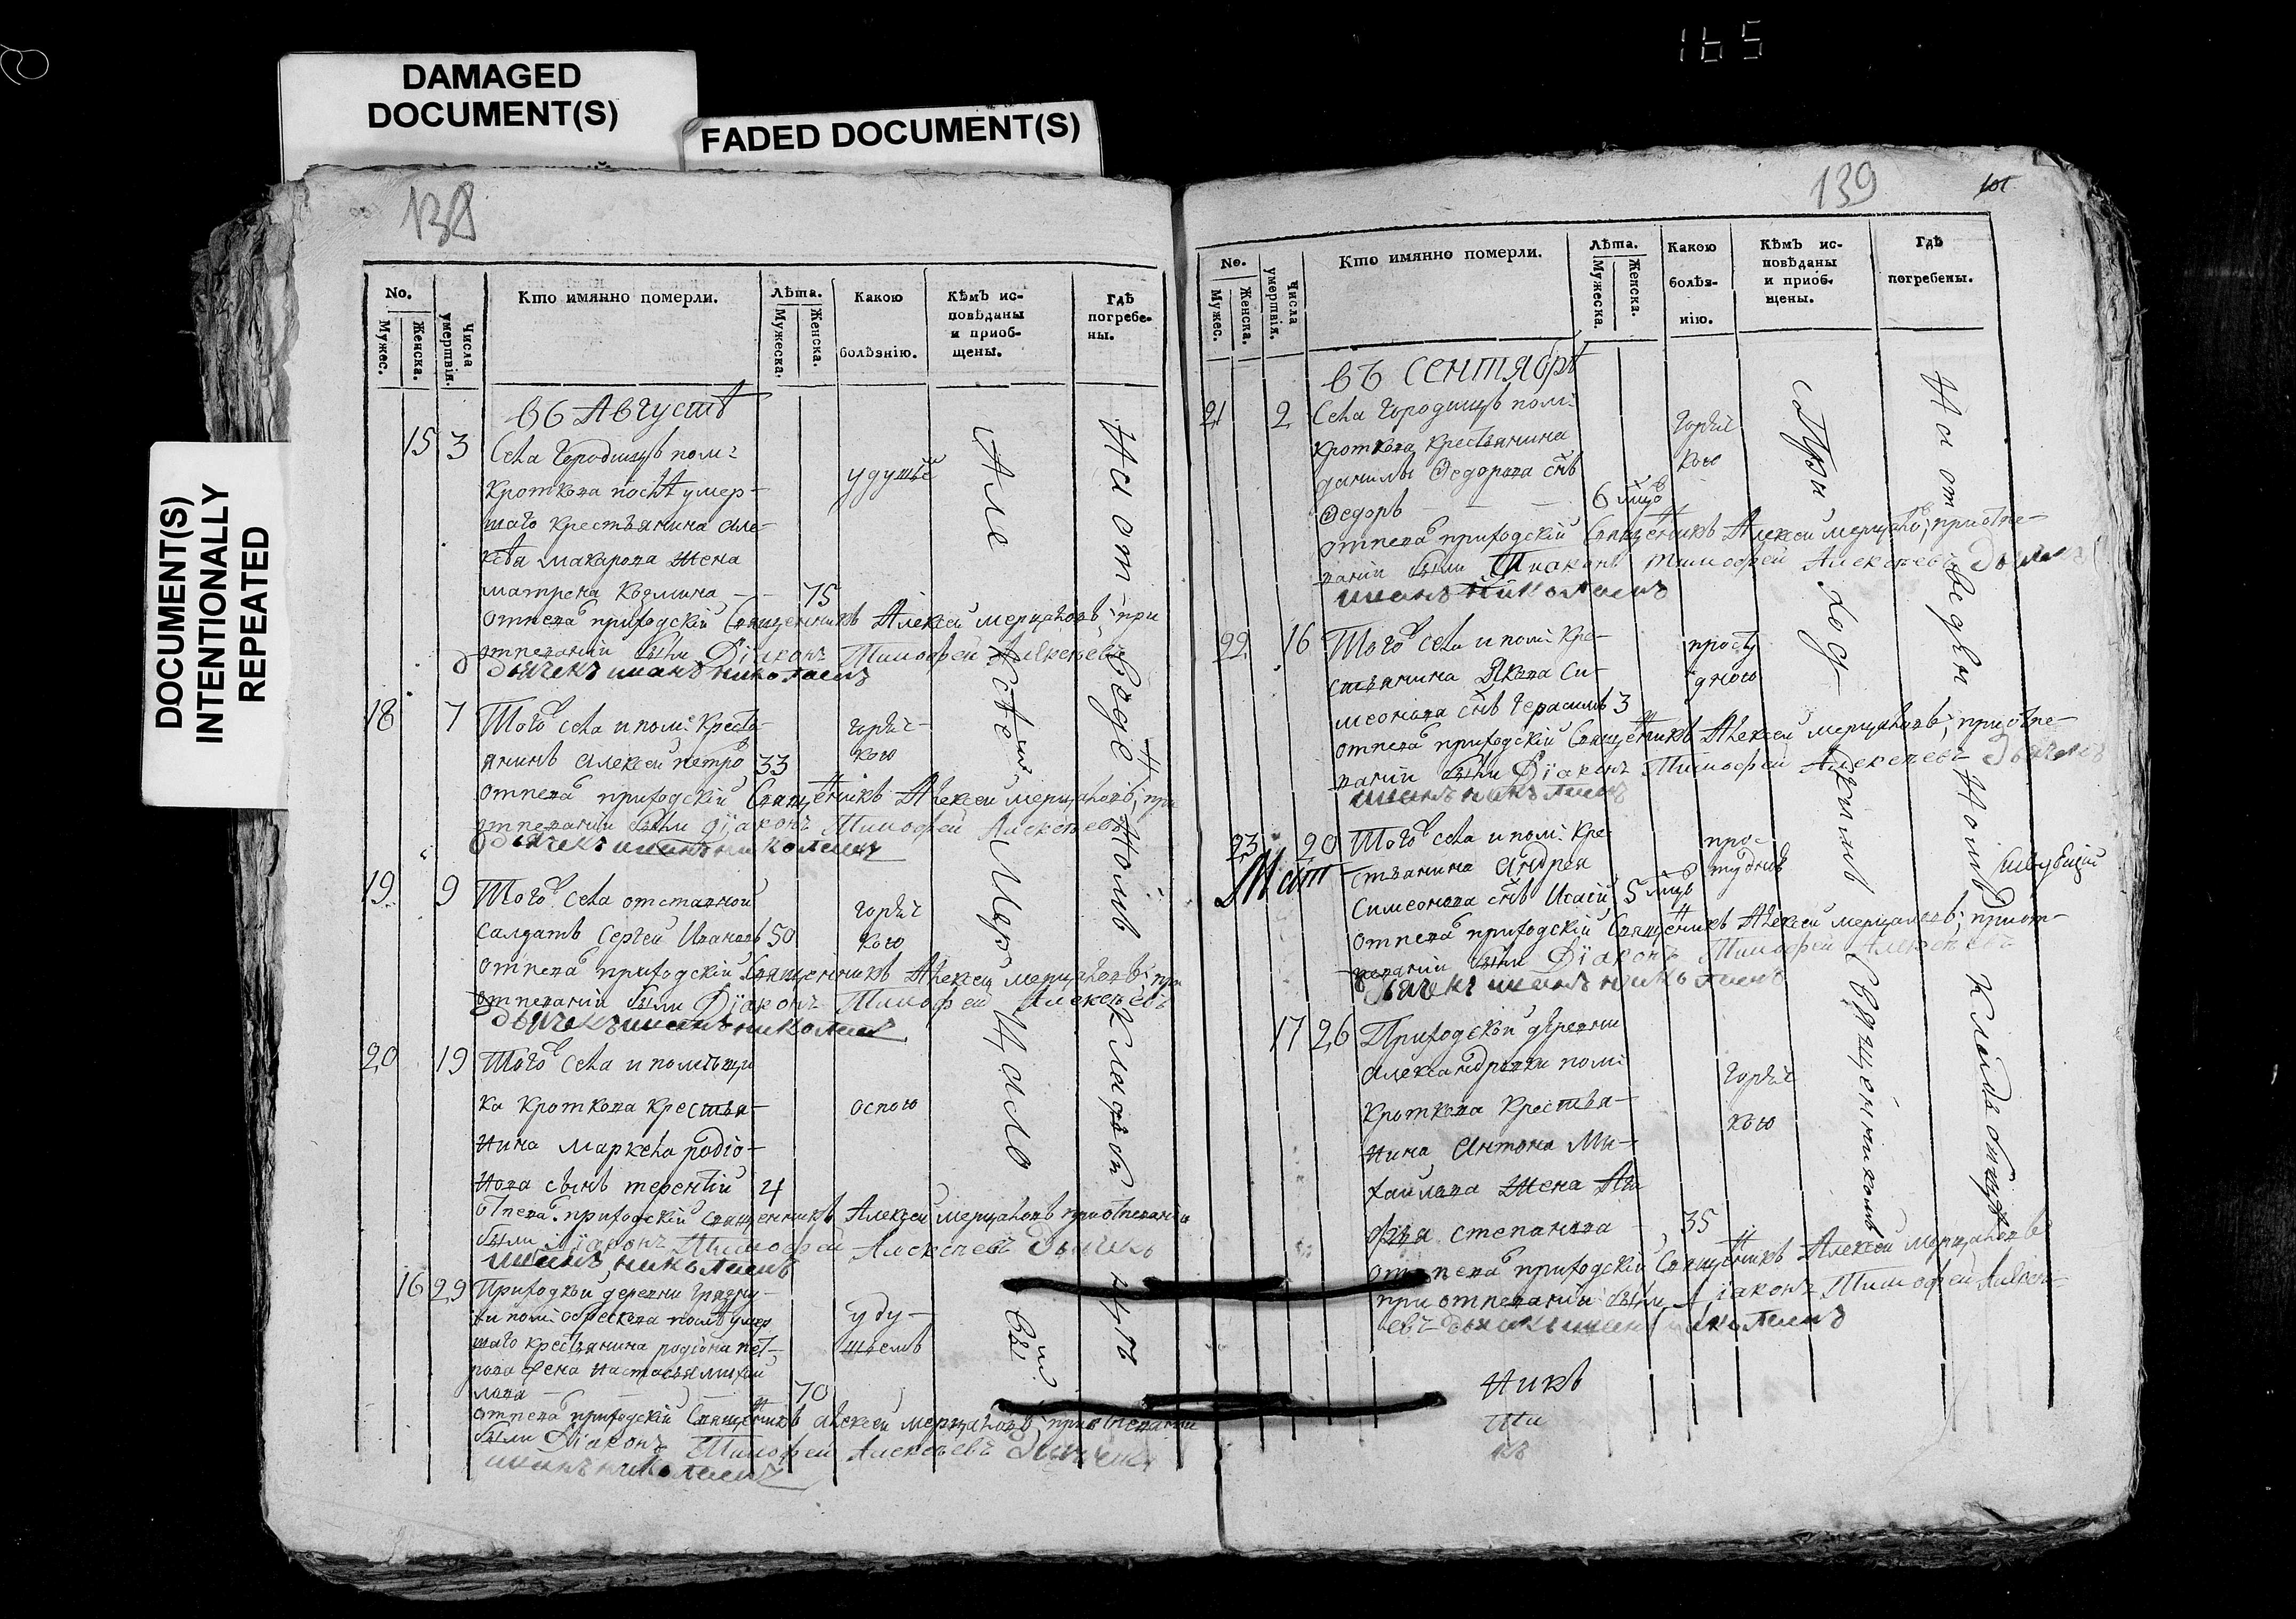 165
DAMAGED
DOCUMENT(S)
FADED DOCUMENT(S)
DOCUMENT(S)
INTENTIONALLY
REPEATED
138
No.
Мужес.
Женска.
Числа умертвія.
Кто имянно померли.
Лѣта.
Мужеска.
Женска.
Какою
болѣзнію.
Кѣмъ ис-
повѣданы
и приоб-
щены.
Гдѣ
погребе-
ны.
въ Августѣ
15 3 Села Городищъ пом:
Кроткова послѣ умер-
шаго крестьянина Але-
ксѣя Макарова жена
Матрена Козмина 75
удушье
отпевалъ приходскій Священникъ Алексей Мерцаловъ; при
отпеваніи были Діаконъ Тимофей Алексеевъ
дьячекъ Иванъ Николаевъ
18 7 Того села и пом: Кресть-
янинъ Алексей Петровъ 33
горяч-
кою
отпевалъ приходскій Священникъ Алексей Мерцаловъ; при
отпеваніи были Діаконъ Тимофей Алексеевъ
дьячекъ Иванъ Николаевъ
19 9 Того села отставной
Салдатъ Сергей Ивановъ 50
горяч-
кою
отпевалъ приходскій Священникъ Алексей Мерцаловъ; при
отпеваніи были Діаконъ Тимофей Алексеевъ
дьячекъ Иванъ Николаевъ
20 19 Того села и помѣщи
ка Кроткова Крестья-
нина Маркела Родіо-
нова сынъ Терентій 4
оспою
отпевалъ приходскій Священникъ Алексей Мерцаловъ при отпеваніи
были Діаконъ Тимофей Алексеевъ дьячекъ
Иванъ Николаевъ
16 29 Приходкой деревни
шаго крестьянина Родіона Пет-
рова жена Настасья Михай
лова 70
уду-
шьемъ
отпевалъ приходскій Священникъ Алексей Мерцаловъ; при отпеваніи
были Діаконъ Тимофей Алексеевъ дьячекъ
Иванъ Николаевъ
На отведенномъ кладби
139
101
No.
Мужес.
Женска.
Числа умертвія.
Кто имянно померли.
Лѣта.
Мужеска.
Женска.
Какою
болѣз-
нію.
Кѣмъ ис-
повѣданы
и приоб-
щены.
Гдѣ
погребены.
въ Сентябрѣ
21 2 Села Городищъ пом:
Кроткова Крестьянина
Данилы Федорова снъ
Федоръ 6 мцо
горяч
кою
отпевалъ приходскій Священникъ Алексей Мерцаловъ; при отпе-
ваніи были Діаконъ Тимофей Алексеевъ дьячекъ
Иванъ Николаевъ
22 16 Того села и пом: Кре-
стьянина Якова Си-
меонова снъ Герасимъ 3
просту
дною
отпевалъ приходскій Священникъ Алексей Мерцаловъ; при отпе-
ваніи были Діаконъ Тимофей Алексеевъ дьячекъ
Иванъ Николаевъ
23 20 Того села и пом: Кре-
стьянина Андрея
Симеонова снъ Исаій 5 мцъ
прос-
тудною
отпевалъ приходскій Священникъ Алексей Мерцаловъ; при от-
певаніи были Діаконъ Тимофей Алексеевъ
дьячекъ Иванъ Николаевъ
17 26 Приходской деревни
Александровки пом:
Кроткова Крестья-
нина Антона Ми-
хайлова жена Ага
фья Степанова 35
горяч
кою
отпевалъ приходскій Священникъ Алексей Мерцаловъ
при отпеваніи были Діаконъ Тимофей Алексе-
евъ дьячекъ Иванъ Николаевъ
Приходскимъ Священникомъ
На отведенномъ кладбищѣ
никъ